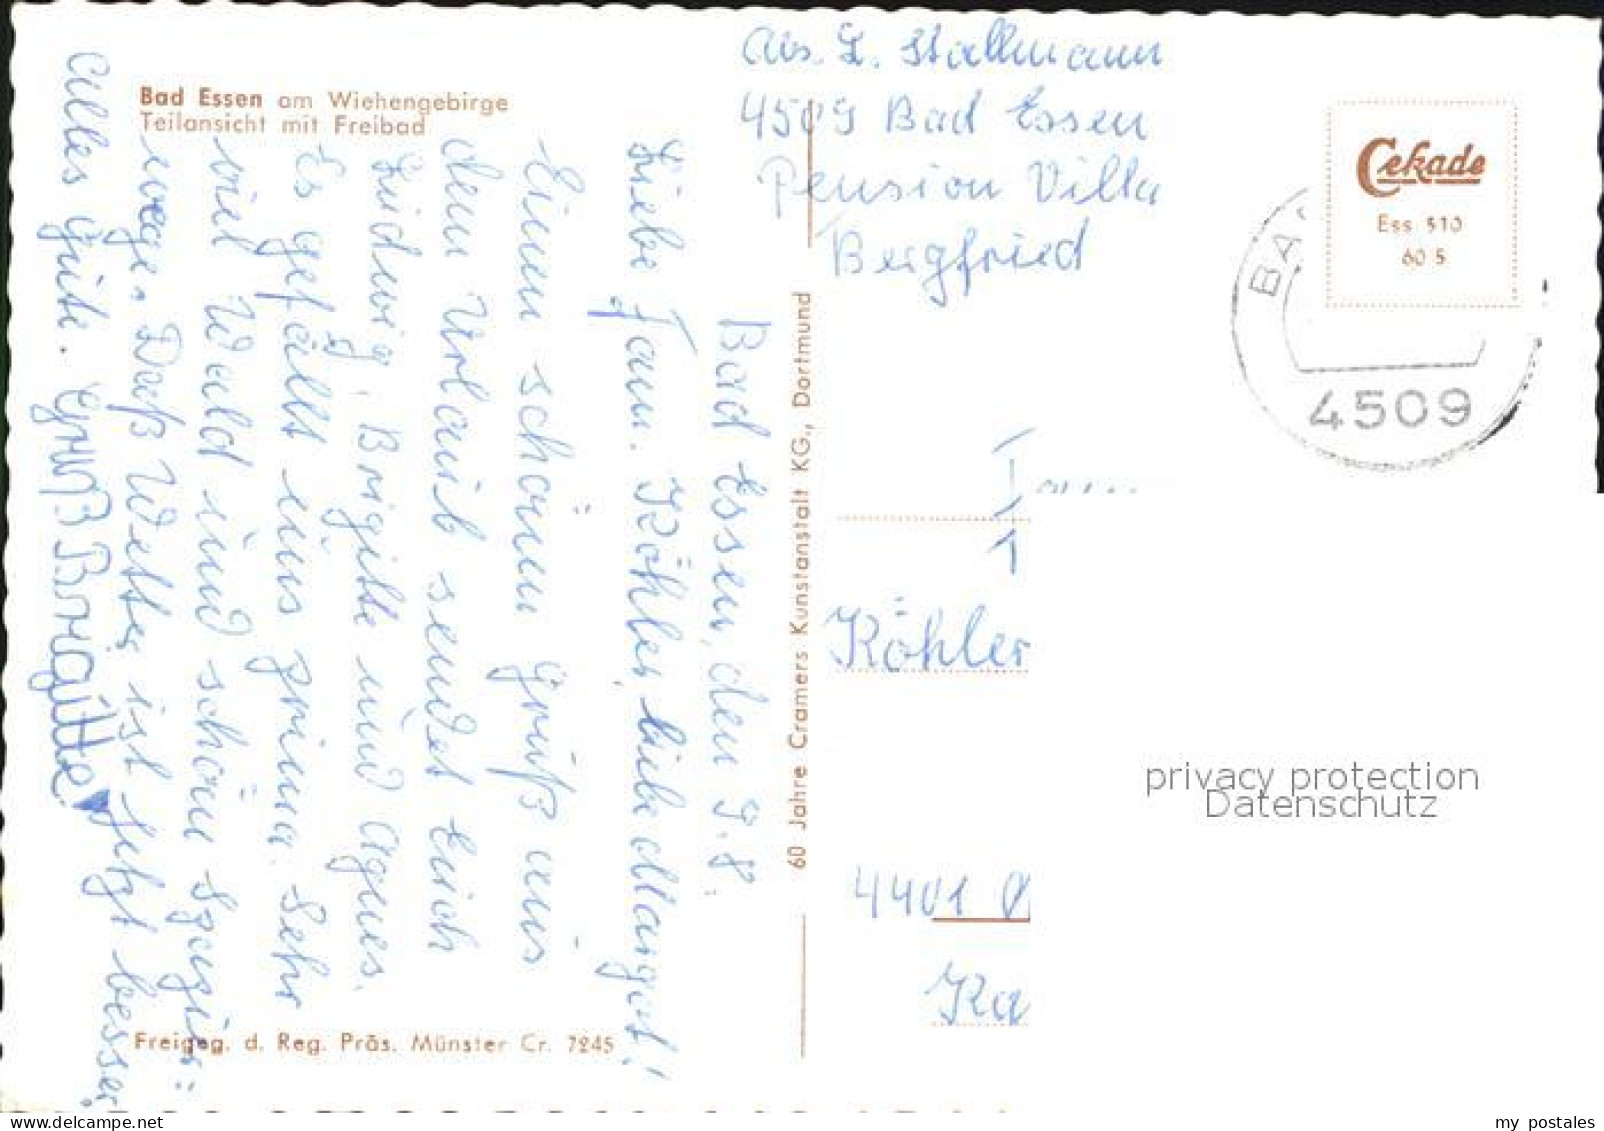 Bad Essen am Wiehengebirge
Teilansicht mit Freibad
Bad Essen, den 9.8.
Liebe Fam. Köhler, liebe Margot!
Einen schönen Gruß aus
dem Urlaub sendet Euch
Ludwig, Brigitte und Agnes.
Es gefällt uns prima. Sehr
viel Wald und schöne Spazier=
wege. Das Wetter ist jetzt besser.
alles gute. Gruß Brigitte
Freigeg. d. Reg. Präs. Münster Cr. 7245
60 Jahre Cramers Kunstanstalt KG., Dortmund
Abs. L. Stallmann
4509 Bad Essen
Pension Villa
Bergfried
Cekade
Ess 510
60 S
BA
4509
Köhler
4401
Ka
privacy protection
Datenschutz
my postales